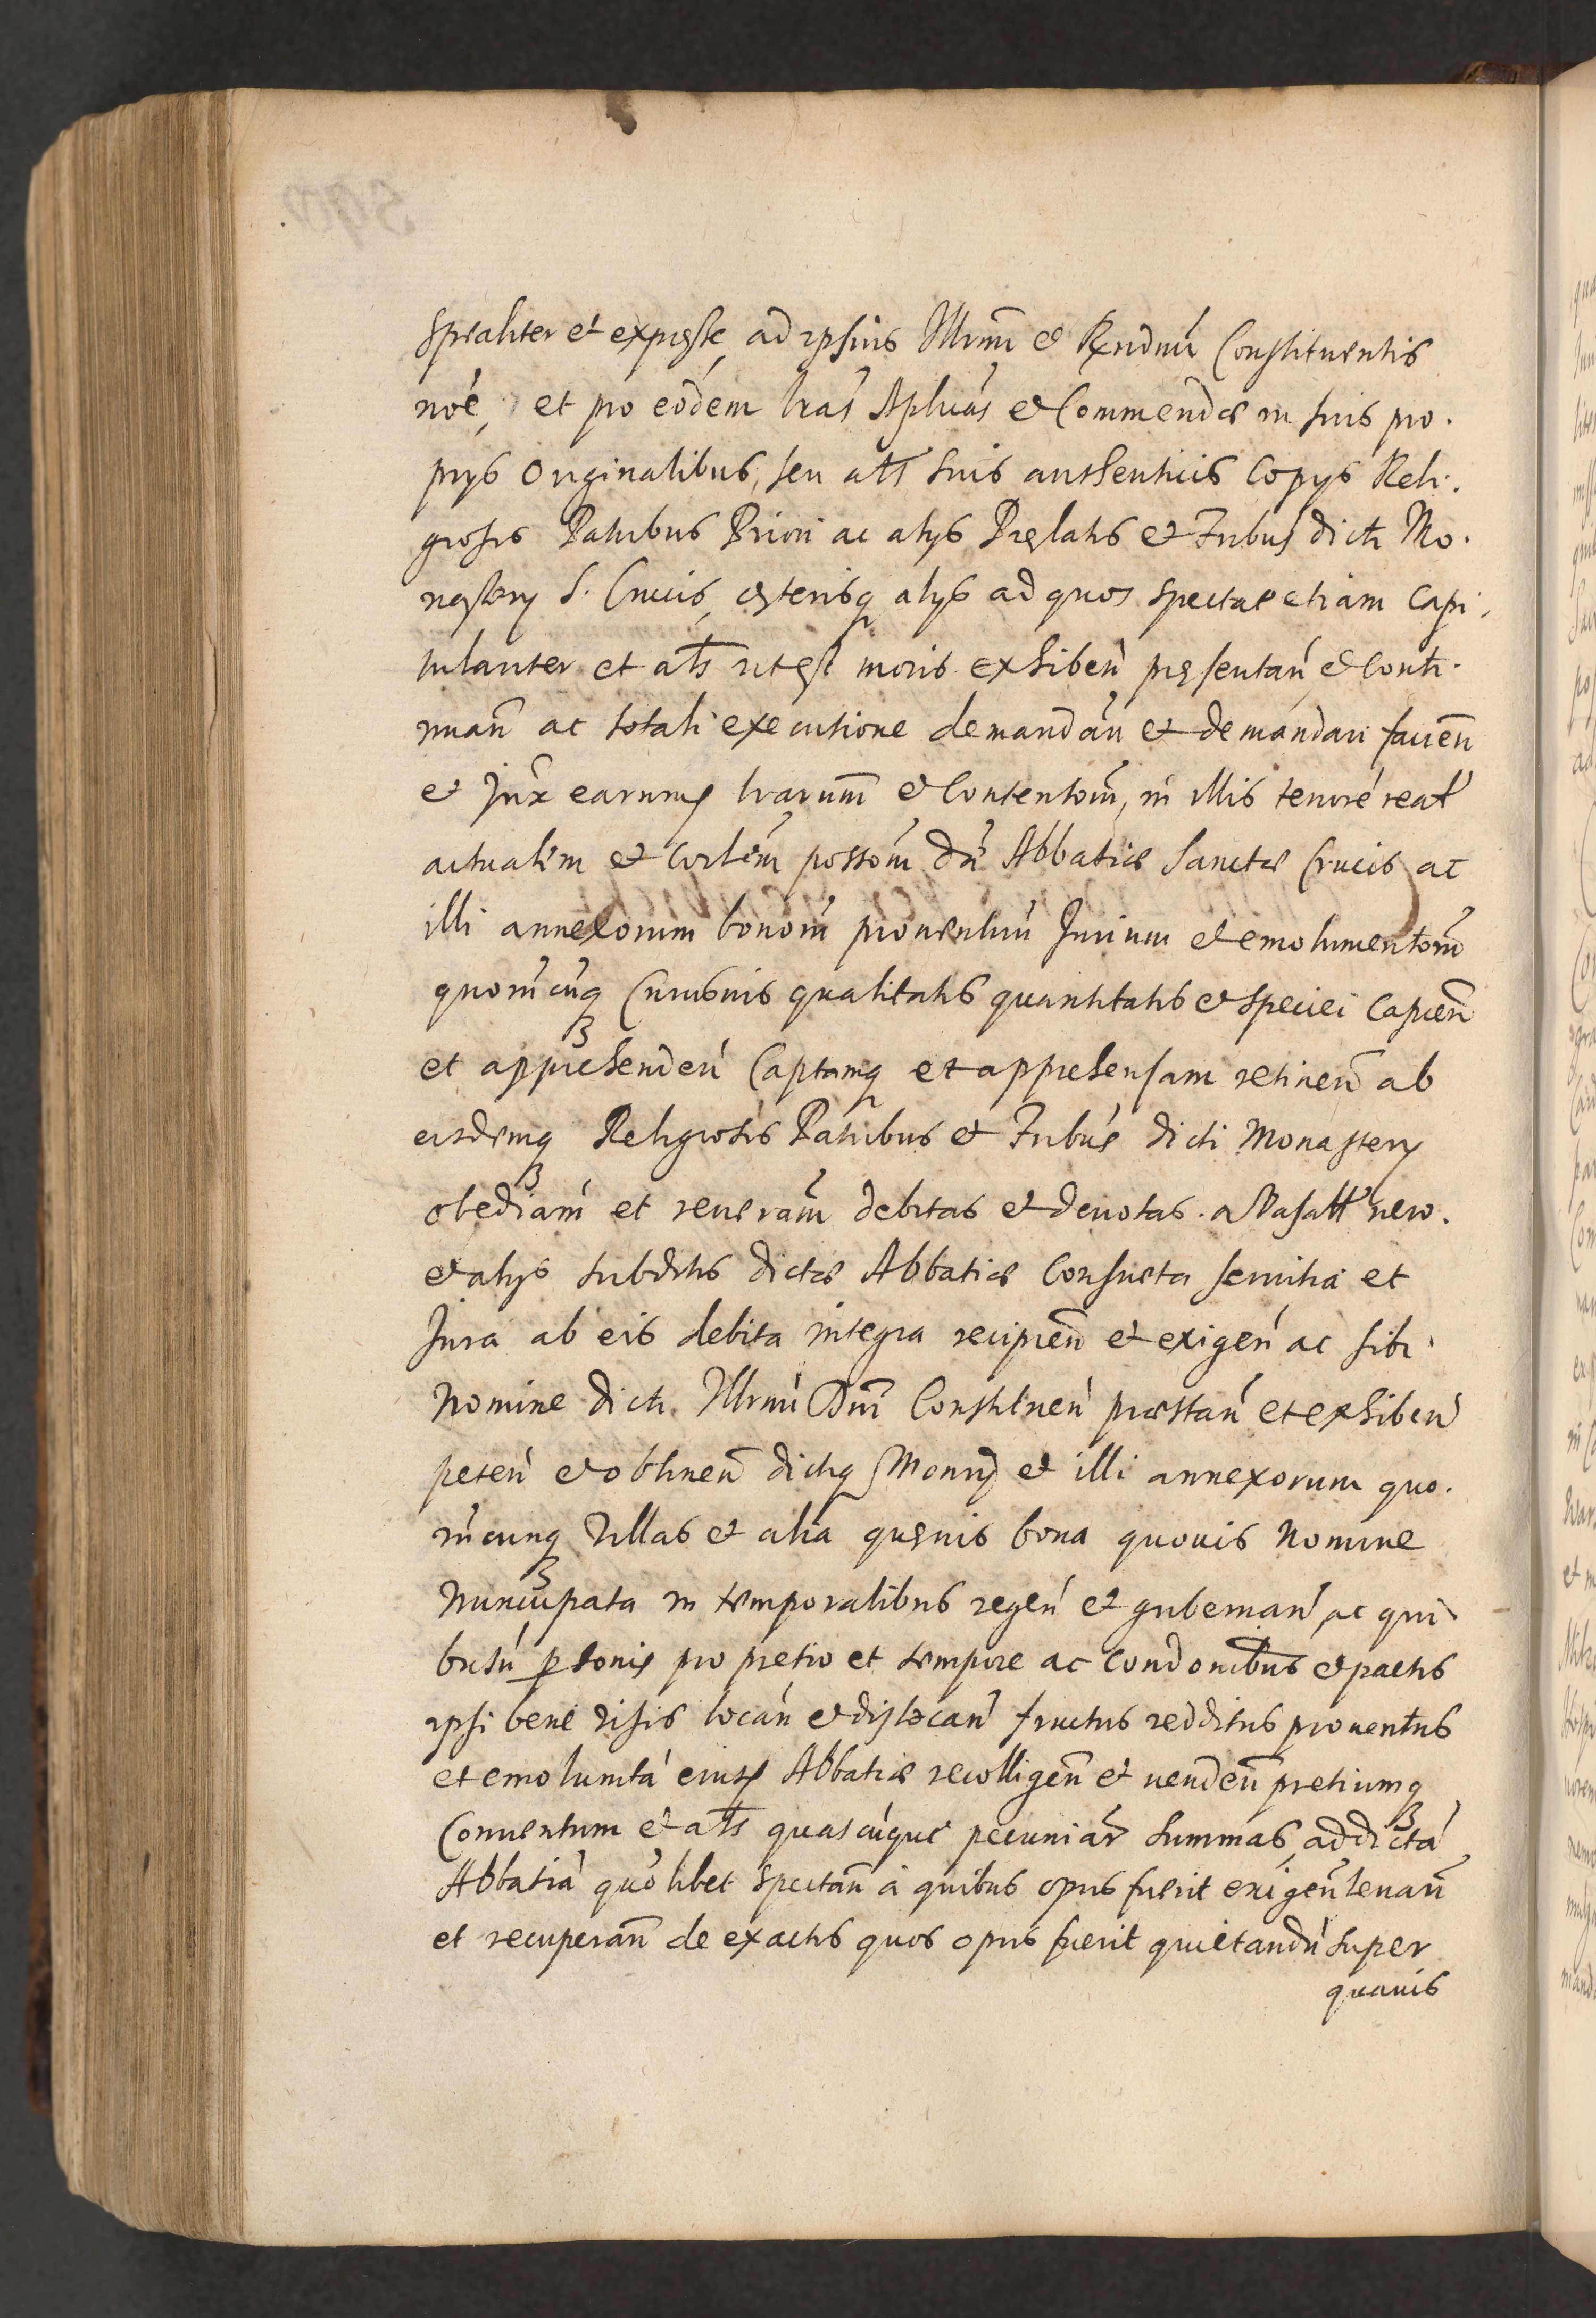 Sprealiter et expresse, ad ipsius Illrmi et Rxndmi Constituentis
noe, et pro eodem lras Aplicas et Commendæ in suis pro.
prys Originalibus, seu als suis authenticis Copys Reli.
giosis Patribus Priori ac alys Prelatis et Fribus dicti Mo.
nastery S. Crucis, ceterisq alys ad quos spectat etiam Capi.
tulariter et als ut est moris exhiben presentan et Conti.
nuan ac totali executione demandan et demandari facien
et Jux earum lrarum et Contentom, in illis tenore real
actualem et corlem possom dæ Abbatiæ Sanctæ Crucis ac
illi annexorum bonom prouentuu Jurium et emolumentom
quorucuq Cuiusuis qualitatis quantitatis et speciei Capien
et apprehenden Captamq et apprehensam retinen ab
eisdemq Religiosis Patribus et Fribus dicti Monastery
obediam et reueram debitas et deuotas. a Vasall uero.
et alys subditis dictæ Abbatiæ Consueta seruitia et
Jura ab eis debita integra recipien et exigen ac sibi.
Nomine dicti Illrmi Dni Constituen præstan et exhiben
peten et obtinen dictiq Monry et illi annexorum quo.
rucunq Villas et alia queuis bona quouis Nomine
Nuncupata in temporalibus regen et gubernan, ac qui
busu personis pro pretio et tempore ac condonibus et pactis
ipsi bene uisis locan et dislocan fructus redditus prouentus
et emolumta eiusd Abbatiæ recolligen et uenden pretiumq
Conuentum et als quascuque pecuniar summas, ad dicta
Abbatia quolibet spectan a quibus opus fuerit exigen leuan
et recuperan de exactis quos opus fuerit quietandu super
quauis